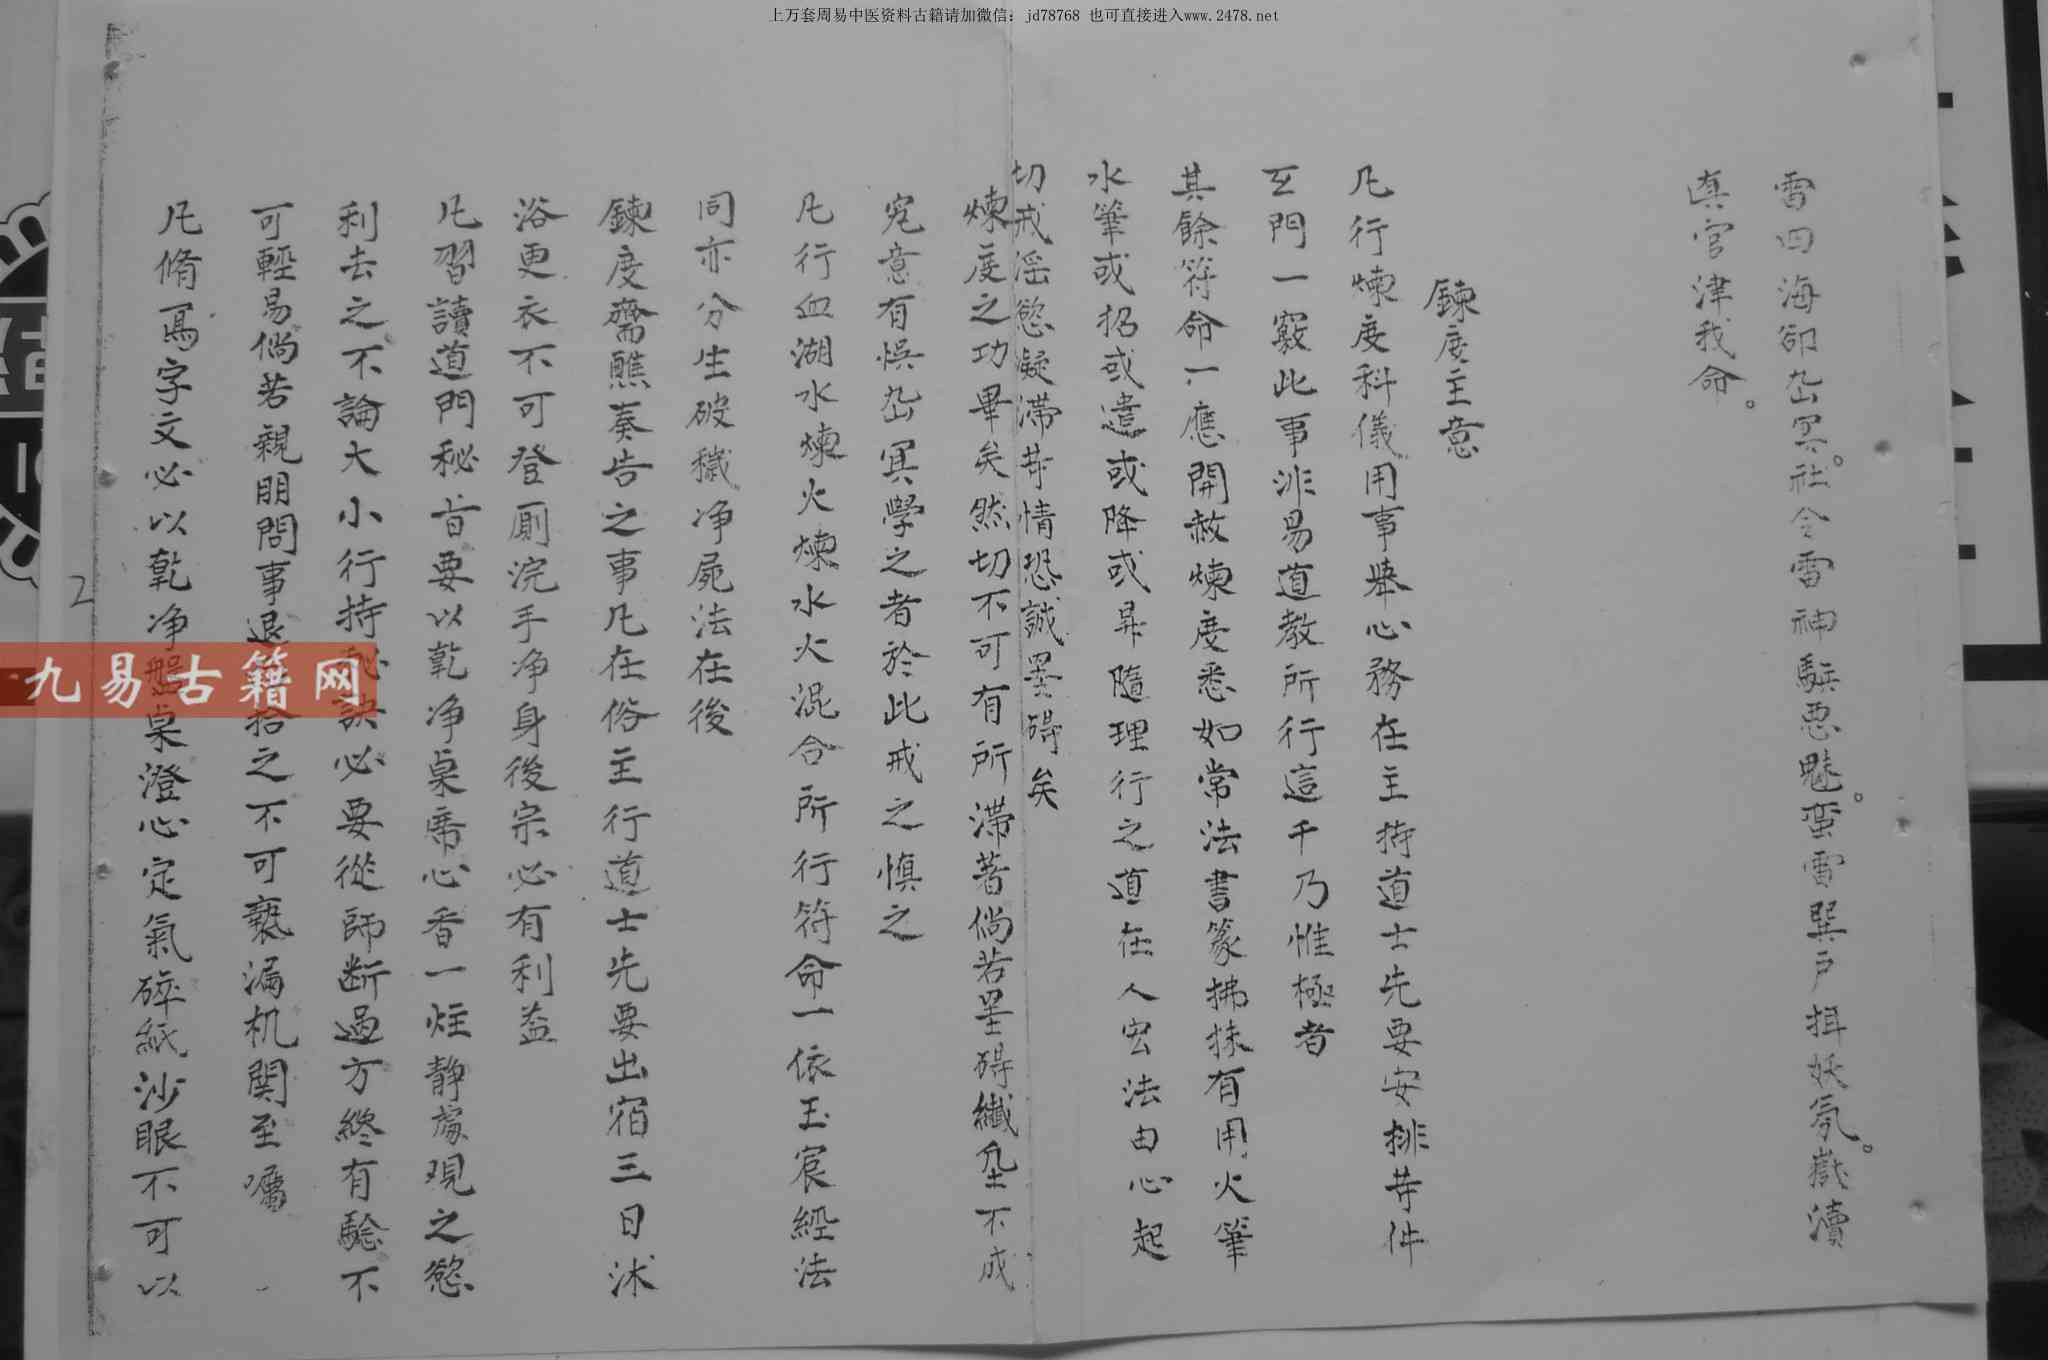 上万套周易中医资料古籍请加微信：jd78768 也可直接进入www.2478.net
雷四海卻岊冥。社令雷神驅惡魅。蛮雷巽户揖妖氛。嶽瀆
真官津我命。
鍊度主意
凡行煉度科儀用事舉心務在主持道士先要安排昔件
玄門一竅此事非易道教所行這千乃惟極者
其餘符命一應開赦煉度悉如常法書篆拂抹有用火筆
水筆或招或遣或降或昇隨理行之道在人宏法由心起
切戒淫慾凝滞昔情恐誠罣碍矣
煉度之功畢矣然切不可有所滞著倘若罣碍纖毫不成
究意有悞岊冥學之者於此戒之慎之
凡行血湖水煉火煉水火混合所行符命一依玉宸經法
同亦分生破穢净屍法在後
鍊度齋醮奏告之事凡在俗主行道士先要出宿三日沐
浴更衣不可登厠浣手净身後宗必有利益
凡習讀道門秘旨要以乾净桌席心香一炷静處观之慾
利去之不論大小行持秘訣必要從師断過方終有驗不
可輕易倘若親朋問事退 拾之不可褻漏机関至囑
凡脩寫字文必以乾净盤桌澄心定氣碎紙沙眼不可以
2
九易古籍网